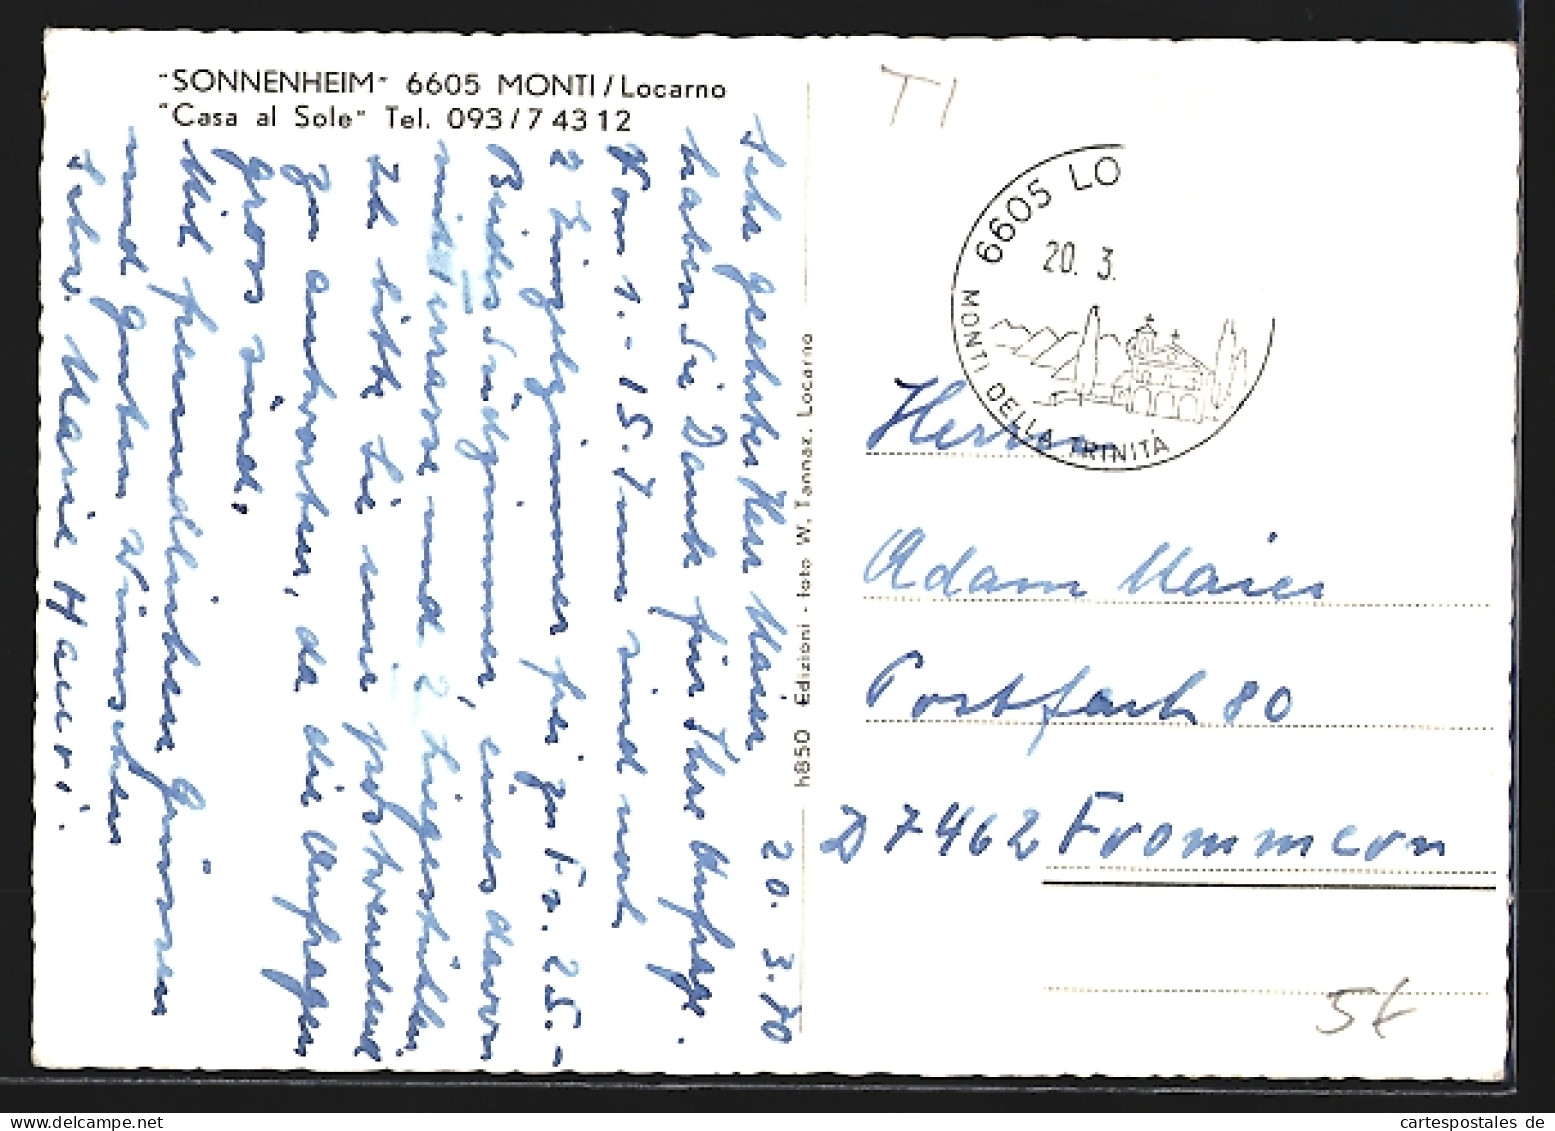 "SONNENHEIM" 6605 MONTI/Locarno
"Casa al Sole" Tel. 093/7 43 12
20. 3. 70
Sehr geehrter Herr Maier
haben Sie Dank für Ihre Anfrage.
Vom 1. - 15. Juni sind noch
2 Einzelzimmer frei zu Fr. 25.-
Beides Südzimmer, eines davon
mit Terrasse und 2 Liegestühlen
Ich bitte Sie mir postwendend
zu antworten, da die Anfragen
gross sind.
Mit freundlichen Grüssen
und guten Wünschen
Schw. Marie Hauri.
h850 Edizioni - foto W. Tannaz. Locarno
TI
6605 LO
20. 3.
MONTI DELLA TRINITÀ
Herrn
Adam Maier
Postfach 80
D 7462 Frommern
cartespostales de